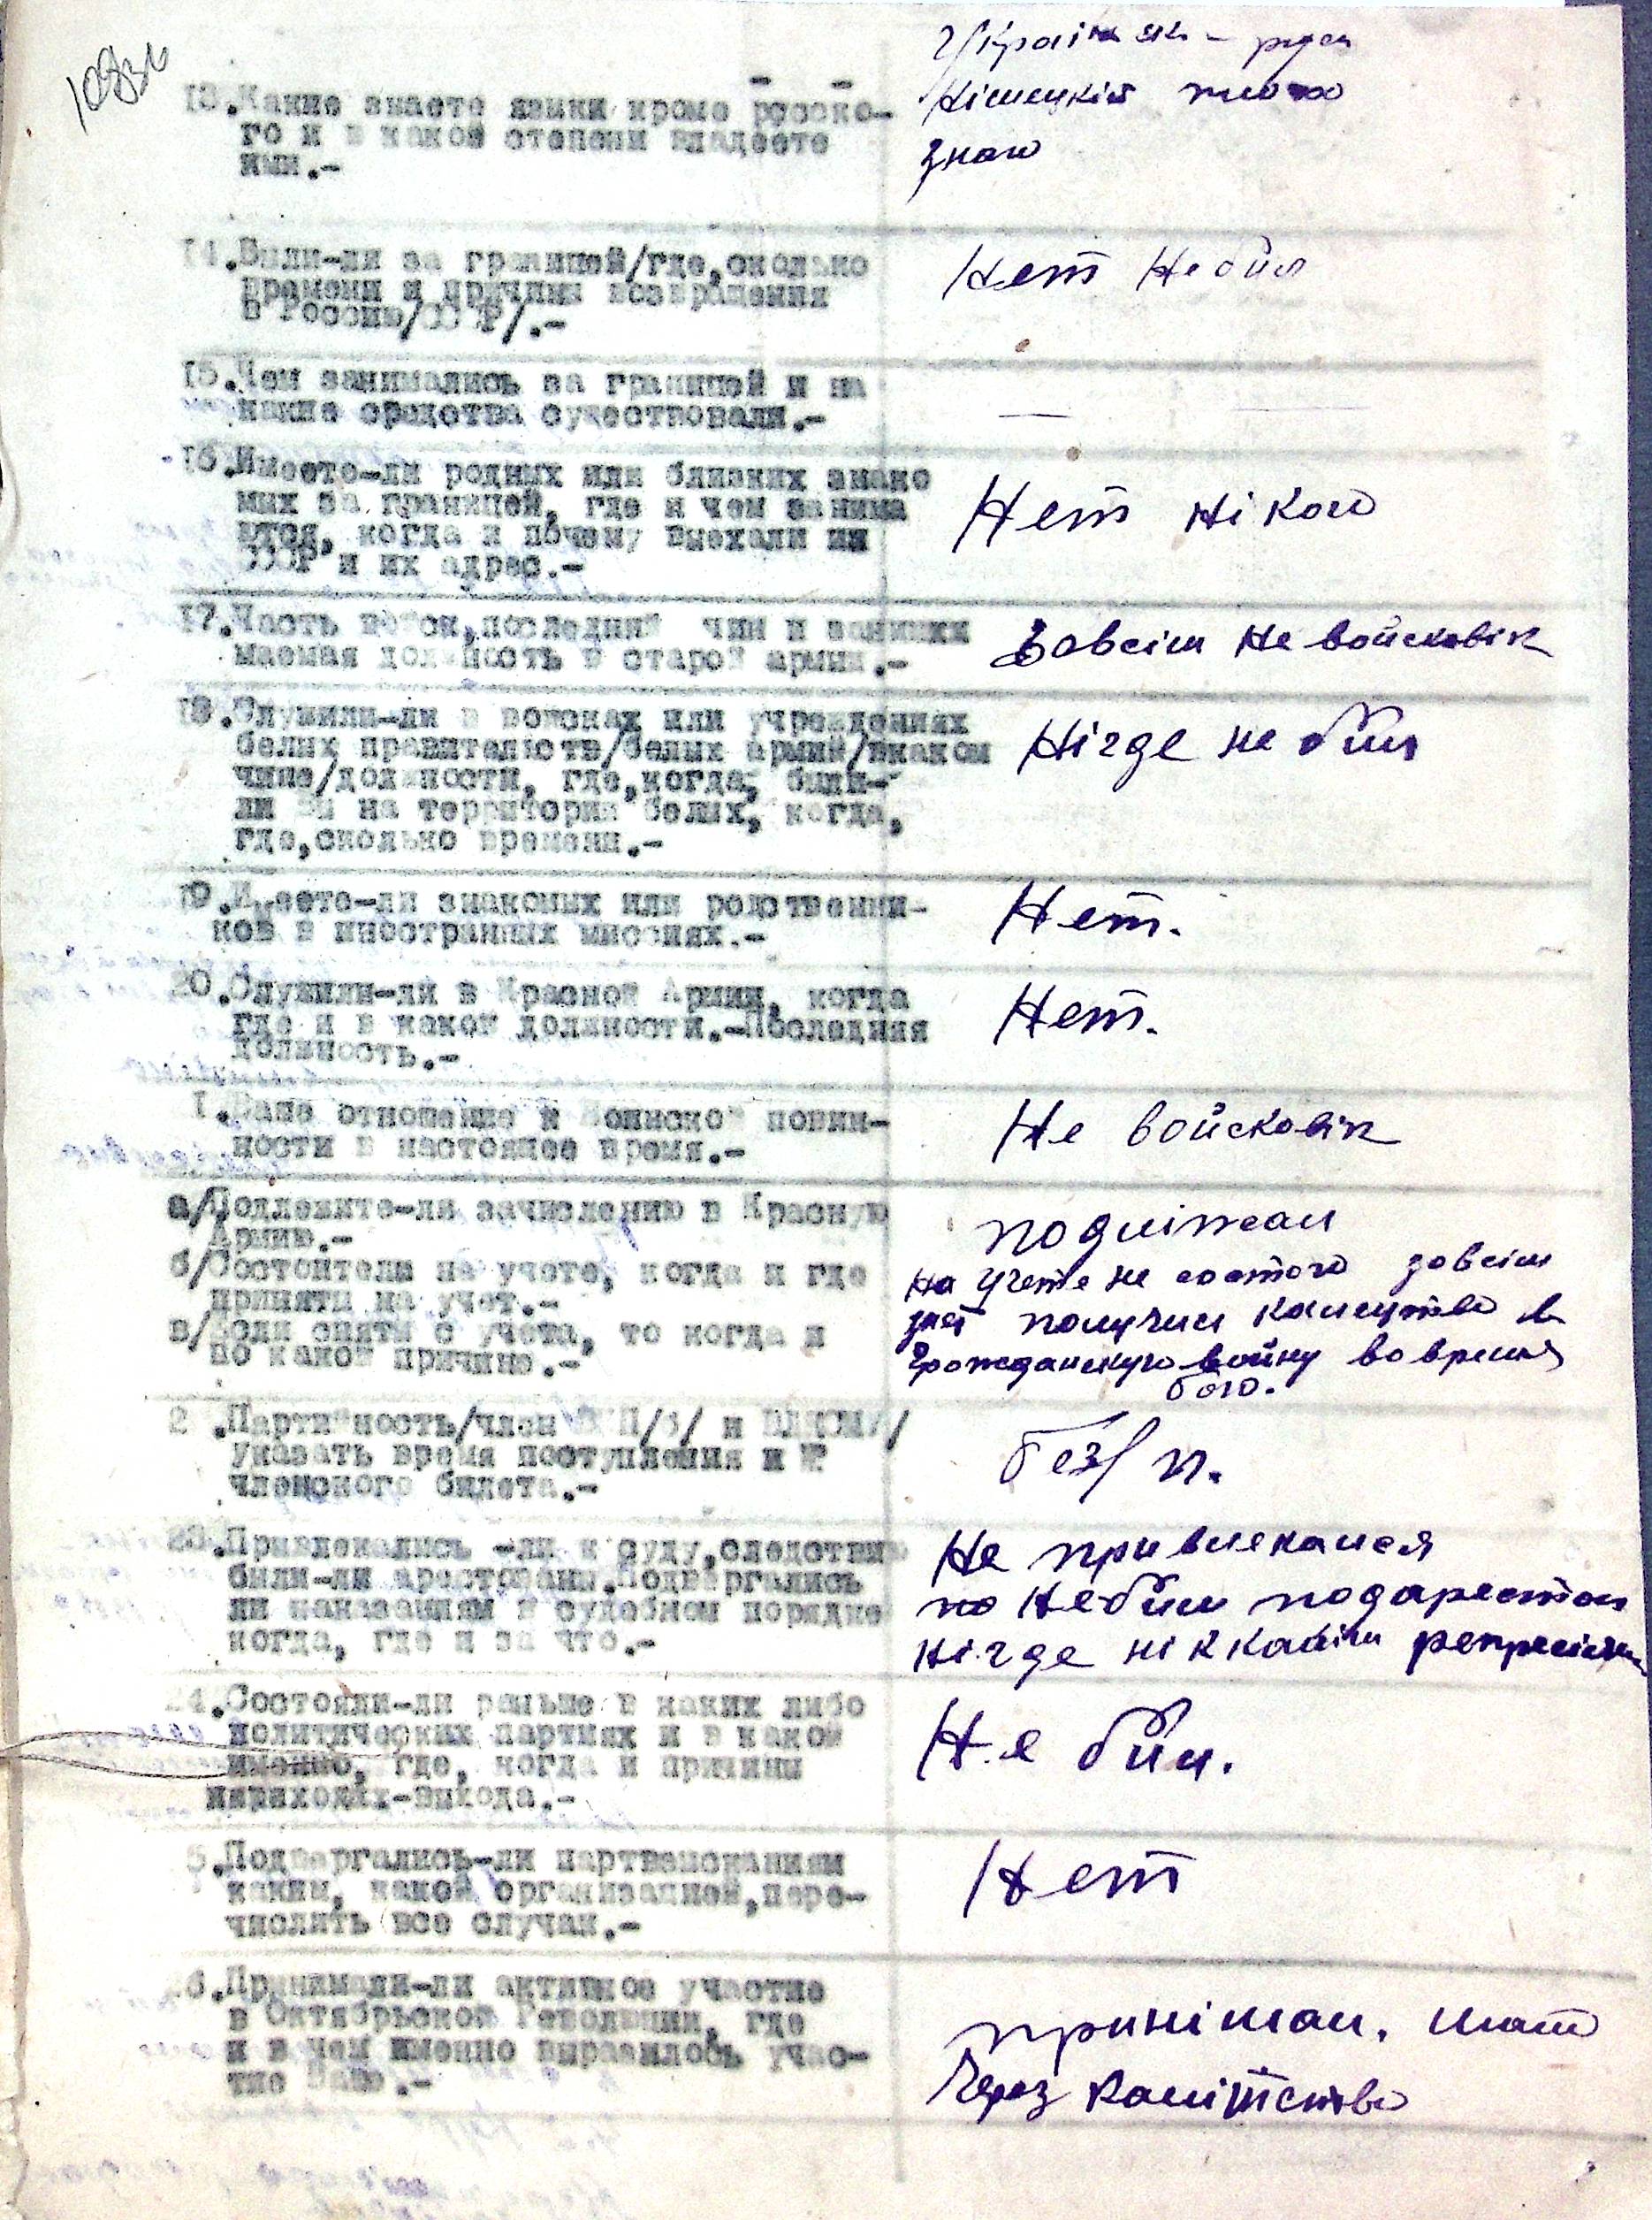 Українск – руск
13.Какие знаете языки кроме русско-
Німецкій плохо
го и в какой степени владеете
знаю
ими.-
14.Были-ли за границей/где,сколько
Нет Небил
времени и причины возвращения
в Россию/СССР/.-
15.Чем занимались за границей и на
какие средства существовали.-
—
16.Имеете-ли родных или близких знако
мых за границей, где и чем занима
Нет ніково
ются, когда и почему выехали из
СССР и их адрес.-
17.Часть войск,последний чин и
Зовсім не войсковік
маемая должность в старой армии.-
18.Служили-ли в войсках или учреждениях
белых правительств/белых армий/вкаком
Нігде не біл
чине/должности, где,когда, были-
ли вы на территории белых, когда,
где,сколько времени.-
19.Имеете-ли знакомых или родственни-
Нет.
ков в иностранных миссиях.-
20.Служили-ли в Красной Армии, когда
где и в какой должности.-Последняя
Нет.
должность.-
1.Ваше отношение к Воинской повин-
Не войсковік
ности в настоящее время.-
а/Подлежите-ли зачислению в Красную
Армию.-
подліжал
б/Состоители на учете, когда и где
На учете не состою зовсім
приняты на учет.-
получил калицтво в
в/Если сняты с учета, то когда и
Грожданскую войну вовремя
по какой причине.-
бою.
2 .Партийность/член ВКП/б/ и ВЛКСМ/
указать время поступления и №
без/п.
членского билета.-
23.Привлекались -ли к суду,следствию
Не привлекался
были-ли арестованы.Подвергались
но Небил подарестом
ли наказаниям в судебном порядке
когда, где и за что.-
нігде ніккаким
24.Состояли-ли раньше в каких либо
политических партиях и в какой
Не біл.
именно, где, когда и причины
переходах-выхода.-
5.Подвергались-ли партвзысканиям
каким, какой организацией,пере-
Нет
числить все случаи.-
26.Принимали-ли активное участие
в Октябрьской Революции, где
принімал.
и в чем именно выразилось учас-
тие Ваше.-
Через калітство